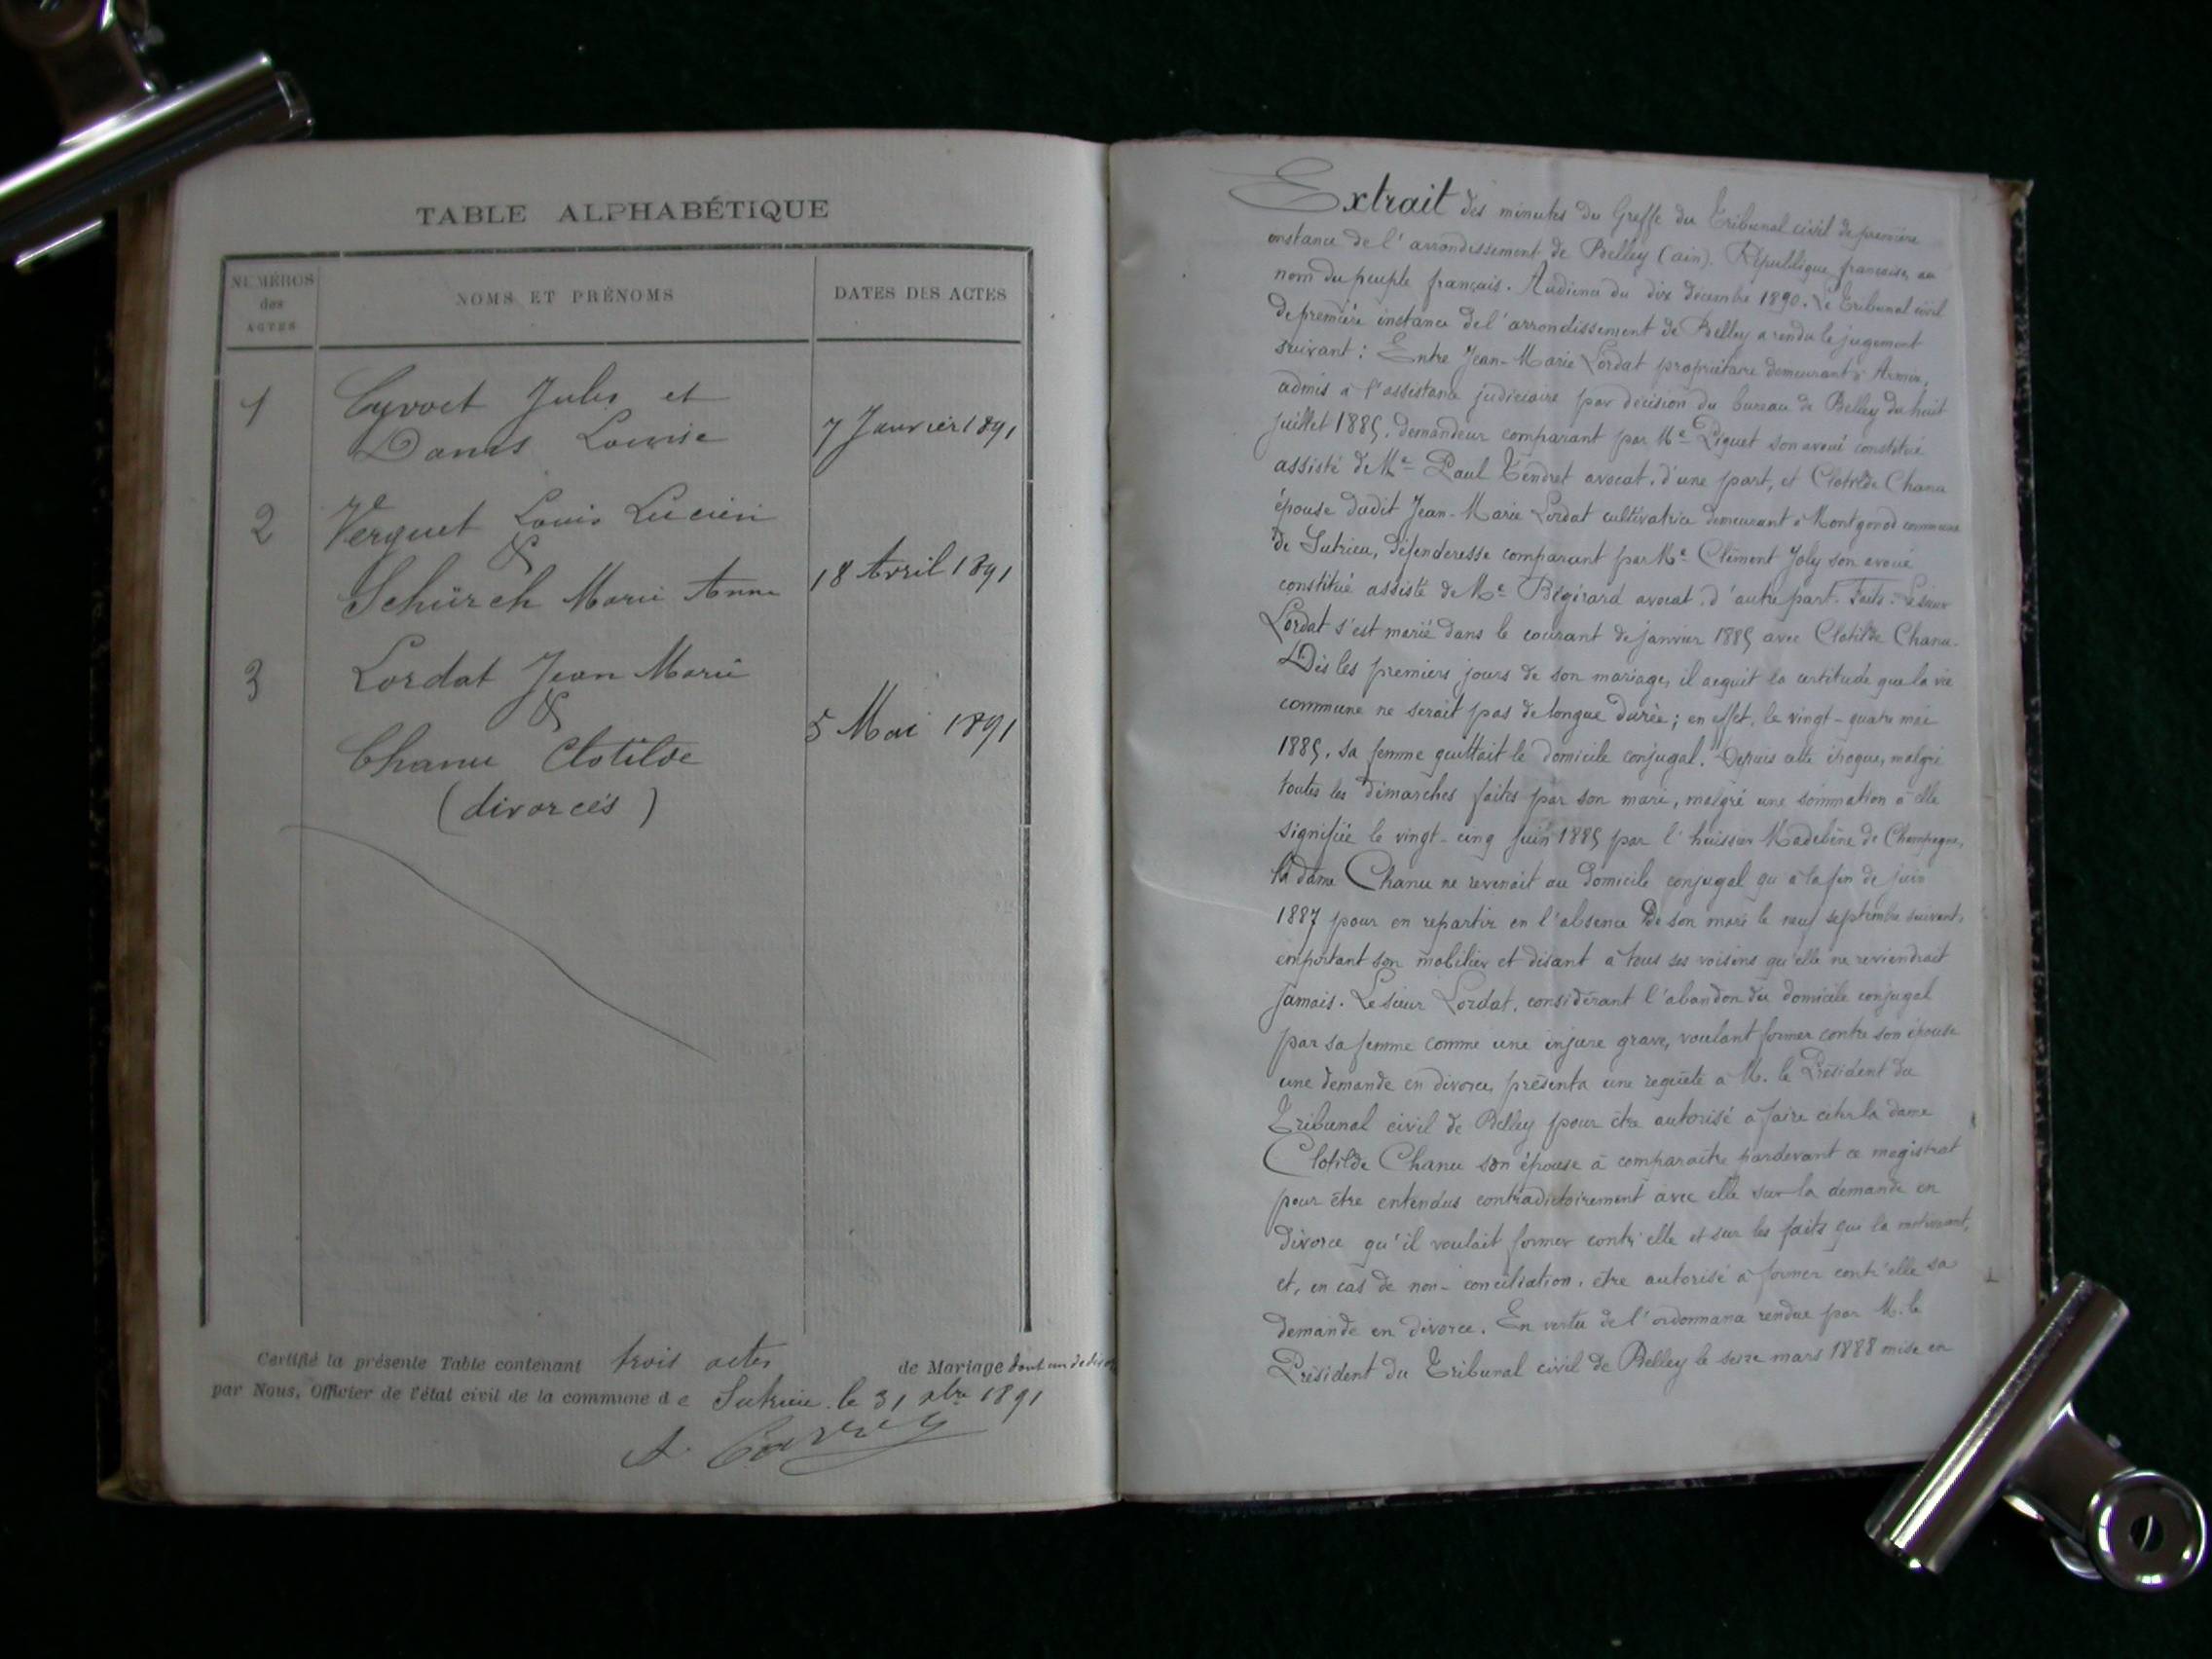 TABLE ALPHABÉTIQUE
NUMÉROS
des
ACTES
NOMS ET PRÉNOMS
DATES DES ACTES
1
Cyvoct Jules et
Danis Louise
7 Janvier 1891
2
Verguet Louis Lucien
&
Schürch Marie Anne
18 Avril 1891
3
Lordat Jean Marie
&
Chanu Clotilde
(divorcés)
5 Mai 1891
Certifié la présente Table contenant trois actes de Mariage dont un de
par Nous, Officier de l'état civil de la commune de Sutrieu le 31 xbre 1891
Extrait des minutes du Greffe du Tribunal civil de première
instance de l'arrondissement de Belley (ain). République française, au
nom du peuple français. Audience du dix décembre 1890. Le Tribunal civil
de première instance de l'arrondissement de Belley a rendu le jugement
suivant: Entre Jean-Marie Lordat propriétaire demeurant à Armix,
admis à l'assistance judiciaire par décision du bureau de Belley du huit
juillet 1885, demandeur comparant par Me Piguet son avoué constitué
assisté de Me Paul Tendret avocat, d'une part, et Clotilde Chanu
épouse dudit Jean-Marie Lordat cultivatrice demeurant à Montgonod commune
de Sutrieu, défenderesse comparant par Me Clément Joly son avoué
constitué assisté de Me Bégérard avocat, d'autre part. Faits. Le sieur
Lordat s'est marié dans le courant de janvier 1885 avec Clotilde Chanu.
Dès les premiers jours de son mariage, il acquit la certitude que la vie
commune ne serait pas de longue durée; en effet, le vingt-quatre mai
1885, sa femme quittait le domicile conjugal. Depuis cette époque, malgré
toutes les démarches faites par son mari, malgré une sommation à elle
signifiée le vingt-cinq juin 1885 par l'huissier Madelène de Champagne,
la dame Chanu ne revenait au domicile conjugal qu'à la fin de juin
1887 pour en repartir en l'absence de son mari le neuf septembre suivant,
emportant son mobilier et disant à tous ses voisins qu'elle ne reviendrait
jamais. Le sieur Lordat, considérant l'abandon du domicile conjugal
par sa femme comme une injure grave, voulant former contre son épouse
une demande en divorce, présenta une requête à M. le Président du
Tribunal civil de Belley pour être autorisé à faire citer la dame
Clotilde Chanu son épouse à comparaître pardevant ce magistrat
pour être entendus contradictoirement avec elle sur la demande en
divorce qu'il voulait former contr'elle et sur les faits qui la motivaient,
et, en cas de non-conciliation, être autorisé à former contr'elle sa
demande en divorce. En vertu de l'ordonnance rendue par M. le
Président du Tribunal civil de Belley le seize mars 1888 mise en